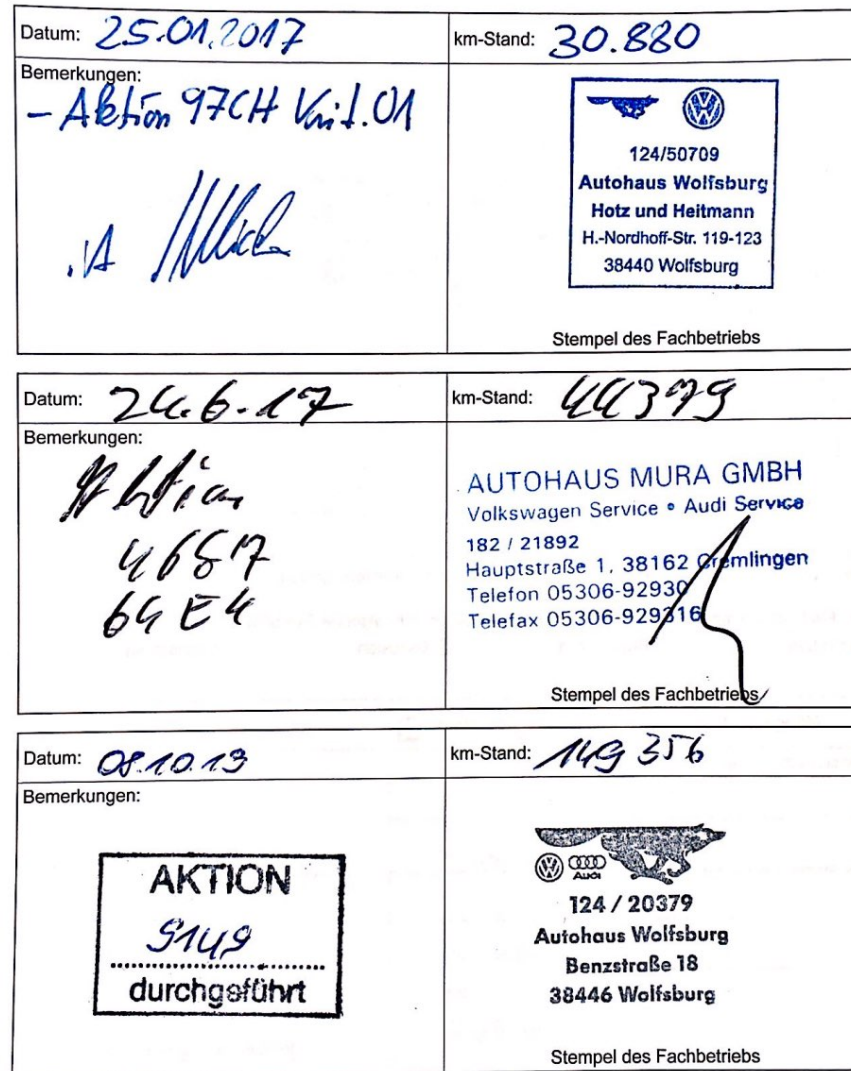 Datum: 25.01.2017
km-Stand: 30.880
Bemerkungen:
- Aktion 97CH Krit.01
i.A
124/50709
Autohaus Wolfsburg
Hotz und Heitmann
H.-Nordhoff-Str. 119-123
38440 Wolfsburg
Stempel des Fachbetriebs
Datum: 24.6.17
km-Stand: 44379
Bemerkungen:
Aktion
64E4
AUTOHAUS MURA GMBH
Volkswagen Service • Audi Service
182 / 21892
Hauptstraße 1, 38162 Cremlingen
Telefon 05306-92930
Telefax 05306-929316
Stempel des Fachbetriebs
Datum: 08.10.19
km-Stand: 149 356
Bemerkungen:
AKTION
9149
durchgeführt
Audi
124 / 20379
Autohaus Wolfsburg
Benzstraße 18
38446 Wolfsburg
Stempel des Fachbetriebs